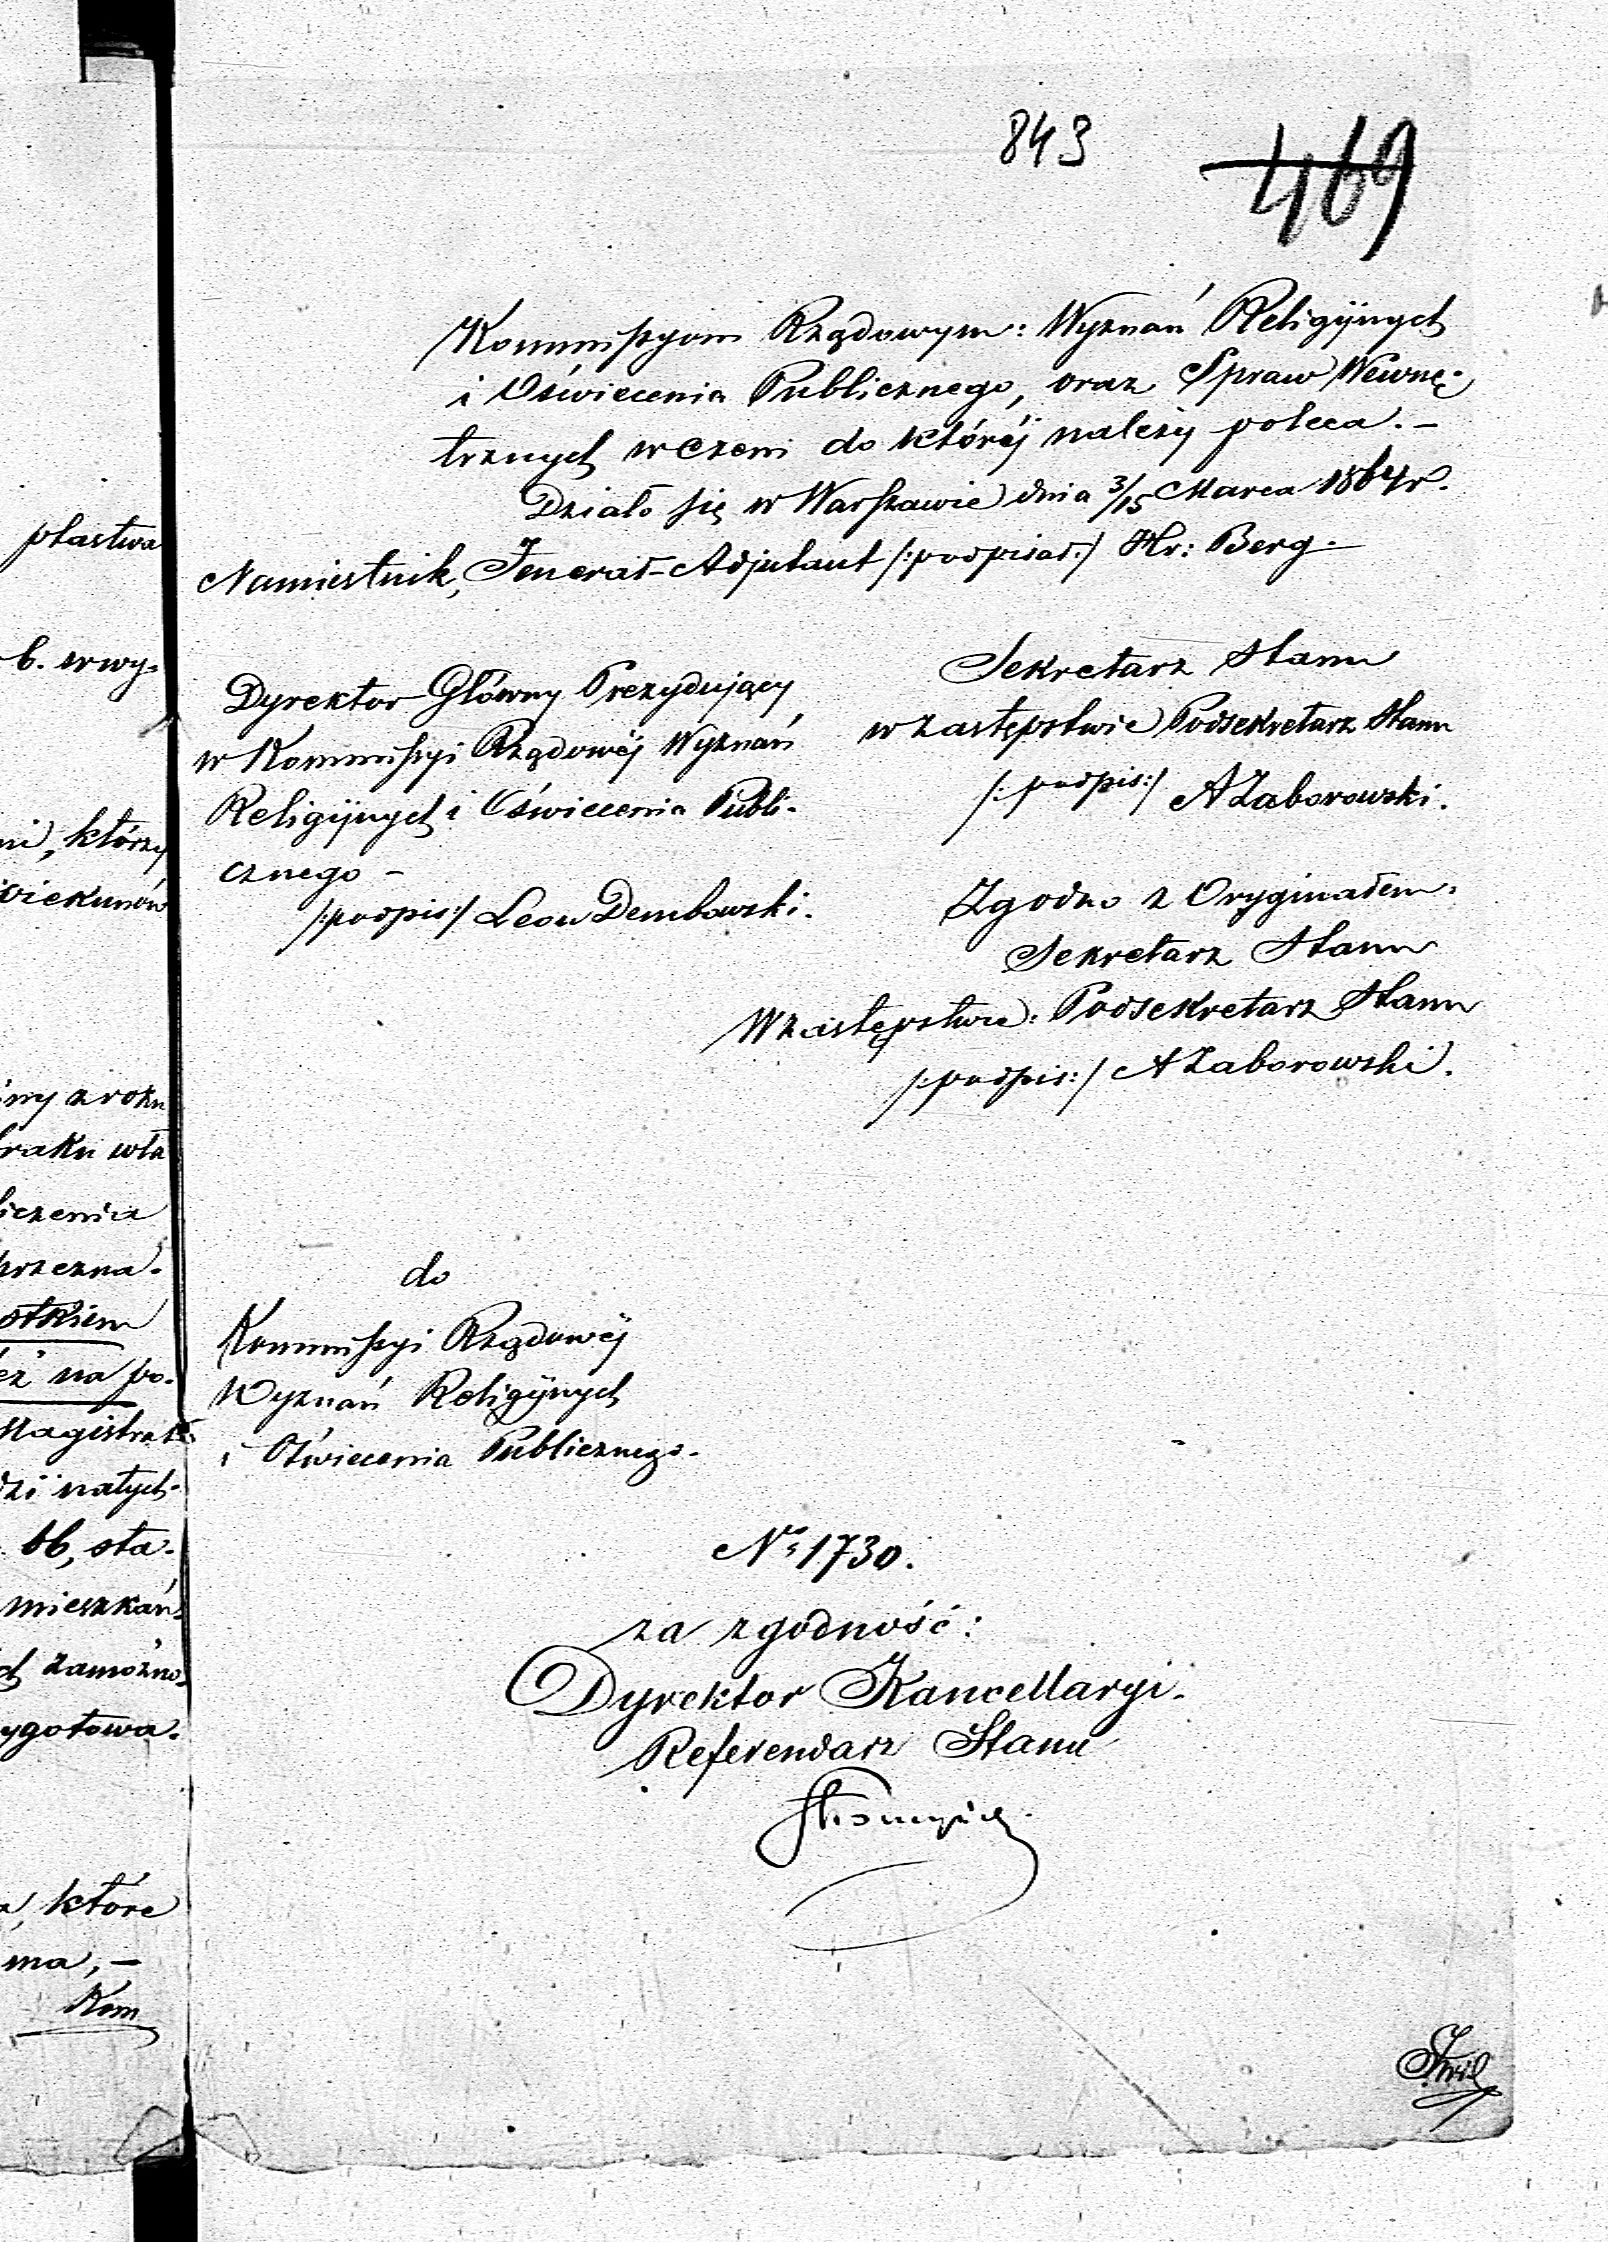 843
469
Kommissyom Rządowym: Wyznań Religijnych
i Oświecenia Publicznego, oraz Spraw Wewnę-
trznych w czem do której należy poleca. –
Działo się w Warszawie dnia 3/15 Marca 1864 r.
Namiestnik, Jenerał-Adjutant /:podpisał:/ Hr: Berg. –
Dyrektor Główny Prezydujący
w Kommissyi Rządowéj Wyznań
Religijnych i Oświecenia Publi-
cznego –
/:podpis:/ Leon Dembowski.
Sekretarz Stanu
w zastępstwie Podsekretarz Stanu
/:podpis:/ A Zaborowski.
Zgodno z Oryginałem:
Sekretarz Stanu
W zastępstwie: Podsekretarz Stanu
/:podpis:/ A Zaborowski.
do
Kommissyi Rządowéj
Wyznań Religijnych
i Oświecenia Publicznego. –
No 1730.
za zgodność:
Dyrektor Kancellaryi.
Referendarz Stanu
ptastwa
b. w wy-
którzy
raku wła
otkiem
na po-
Magistrat
natych-
bb, sta-
mieszkań-
zamożno-
ygotowa-
które
ma, –
Kom